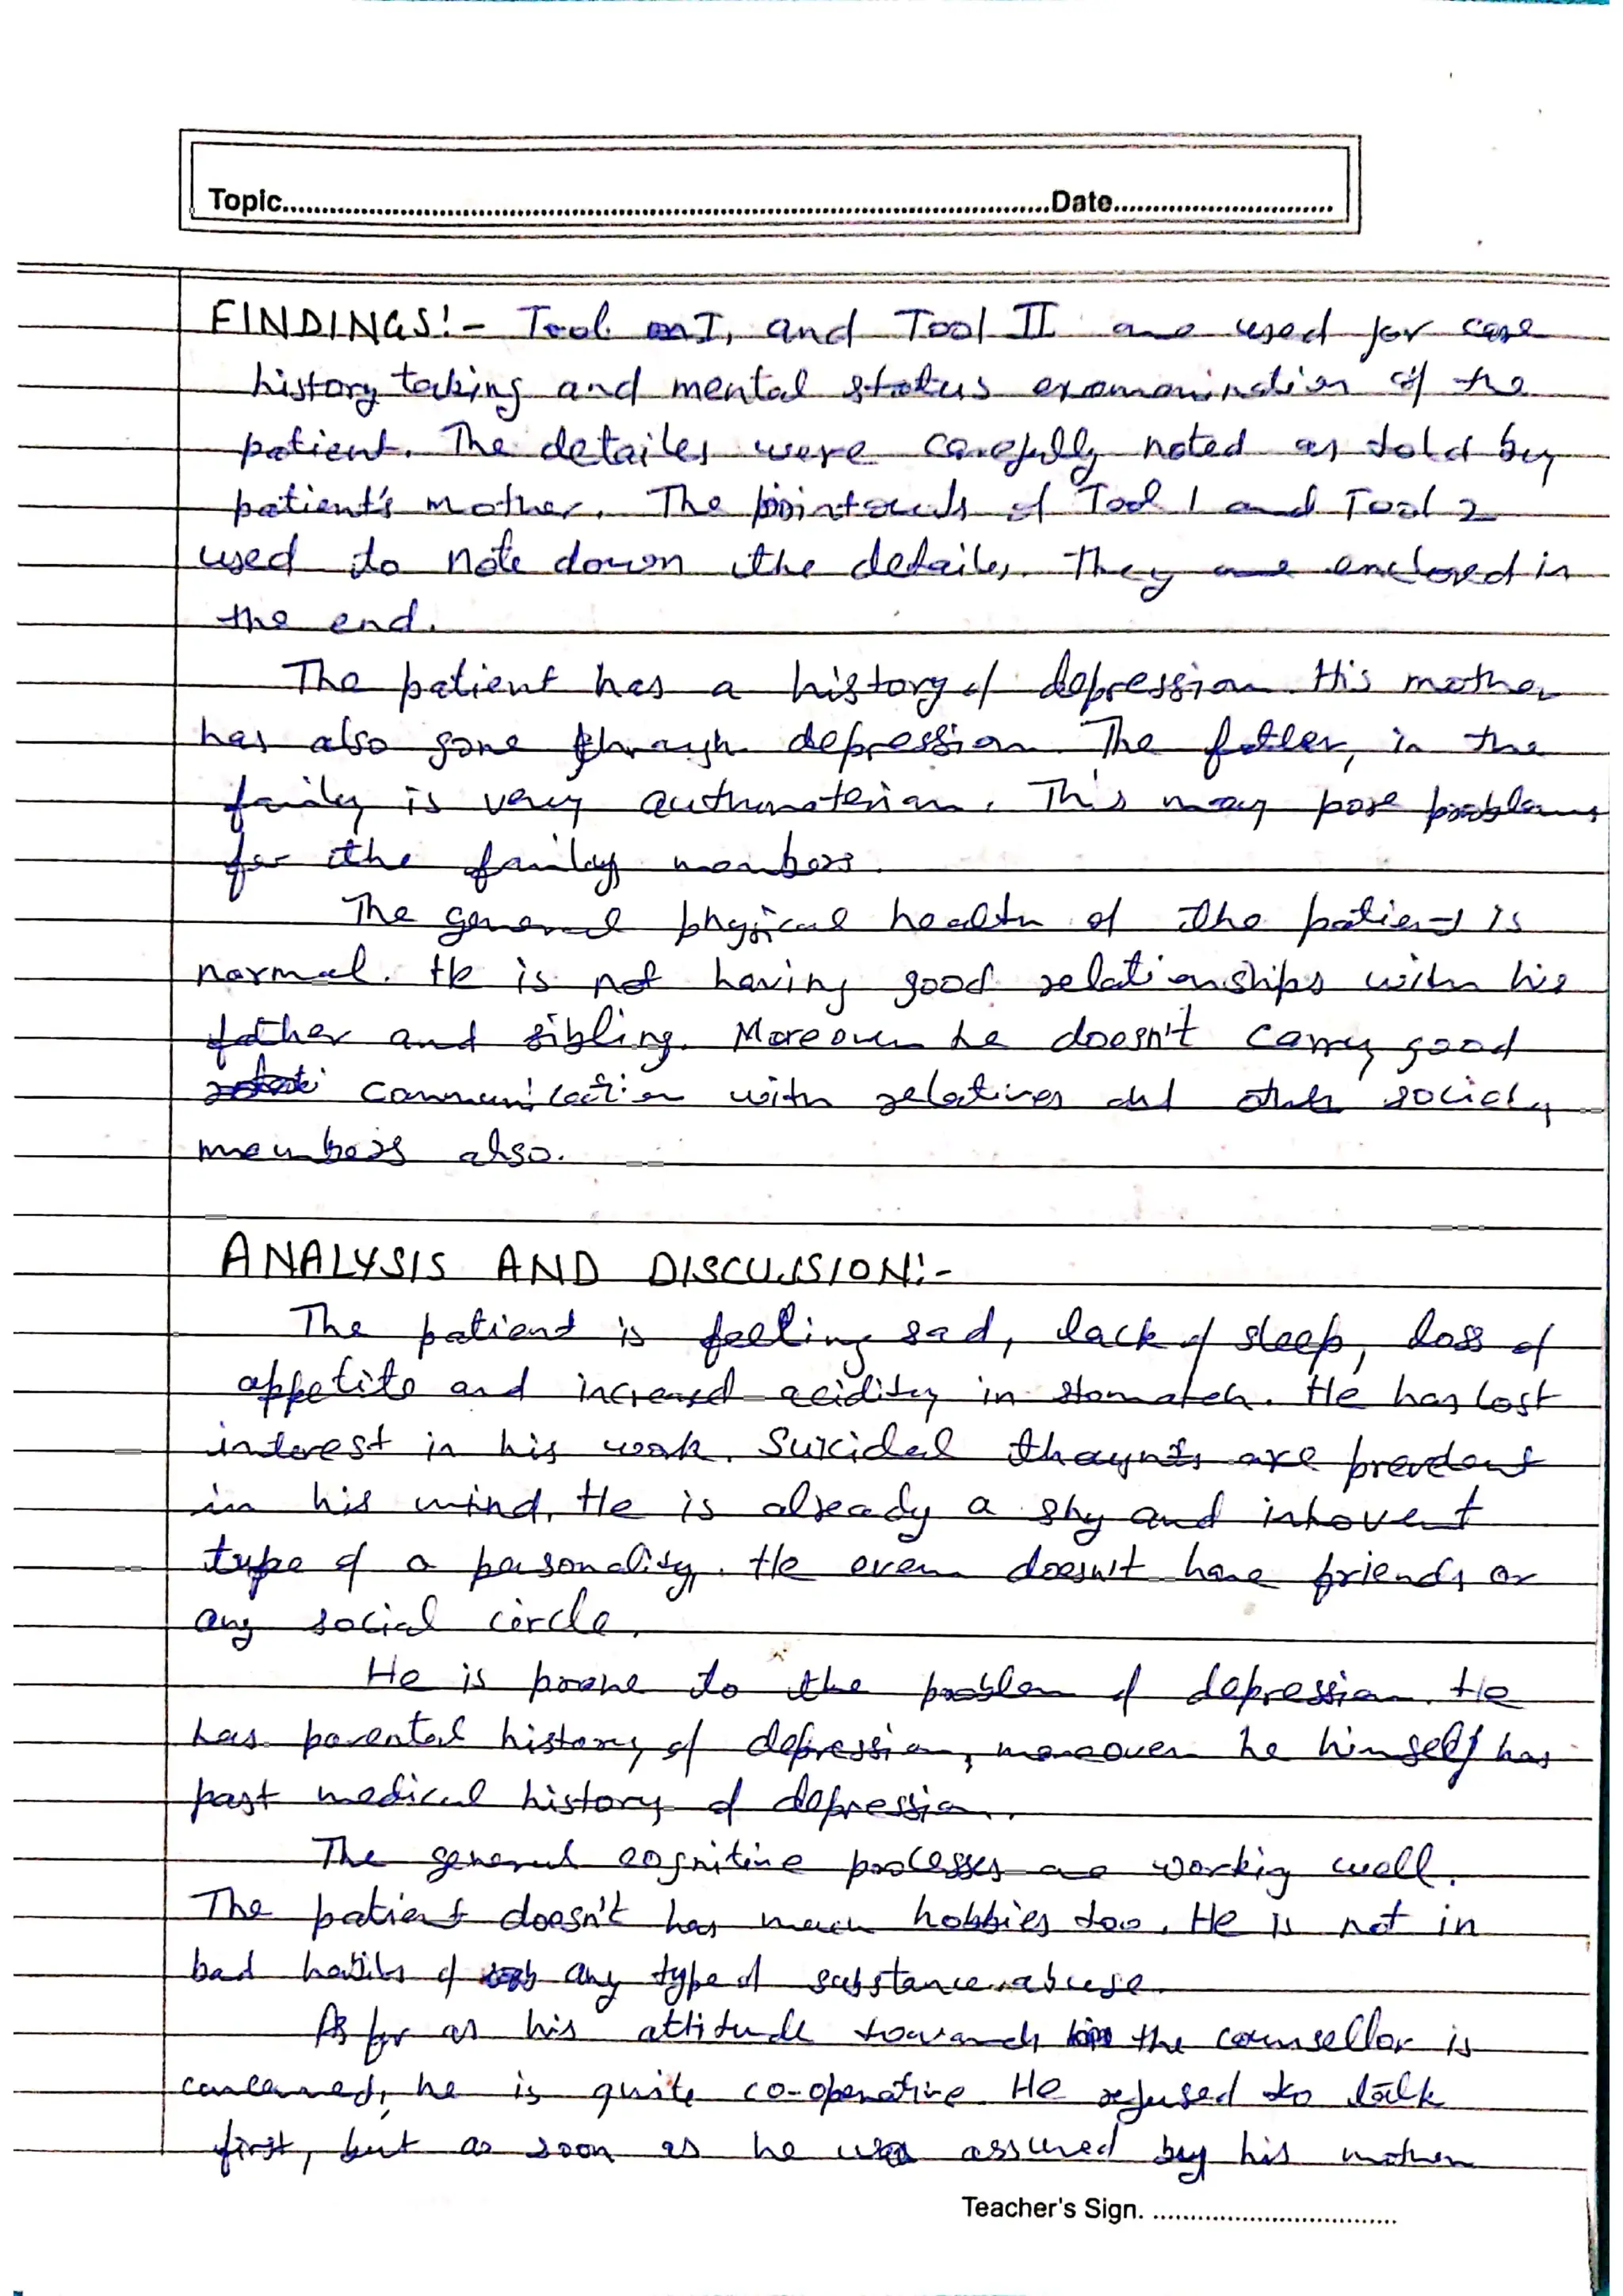 Topic..........Date..........
FINDINGS:- Tool I, and Tool II are used for case
history taking and mental status examomination of the
patient. The detailes were carefully noted as told by
patient's mother. The printouts of Tool 1 and Tool 2
used to note down the details. They are enclosed in
the end.
The patient has a history of depression. His mother
has also gone through depression. The father, in the
family is very authoritarian. This may pose problems
for the family members.
The general physical health of the patient is
normal. He is not having good relationships with his
father and sibling. Moreover he doesn't carry good
communication with relatives and other society
members also.
ANALYSIS AND DISCUSSION:-
The patient is feeling sad, lack of sleep, loss of
appetite and increased acidity in stomatch. He has lost
interest in his work. Suicidal thoughts are prevalent
in his mind. He is already a shy and introvert
type of a personality. He even doesn't have friends or
any social circle.
He is prone to the problem of depression. He
has parental history of depression, moreover he himself has
past medical history of depression.
The general cognitive processes are working well.
The patient doesn't has much hobbies too. He is not in
bad habits of any type of substance abuse.
As far as his attitude towards the counsellor is
concerned, he is quite co-operative. He refused to talk
first, but as soon as he was assured by his mother
Teacher's Sign. ..........